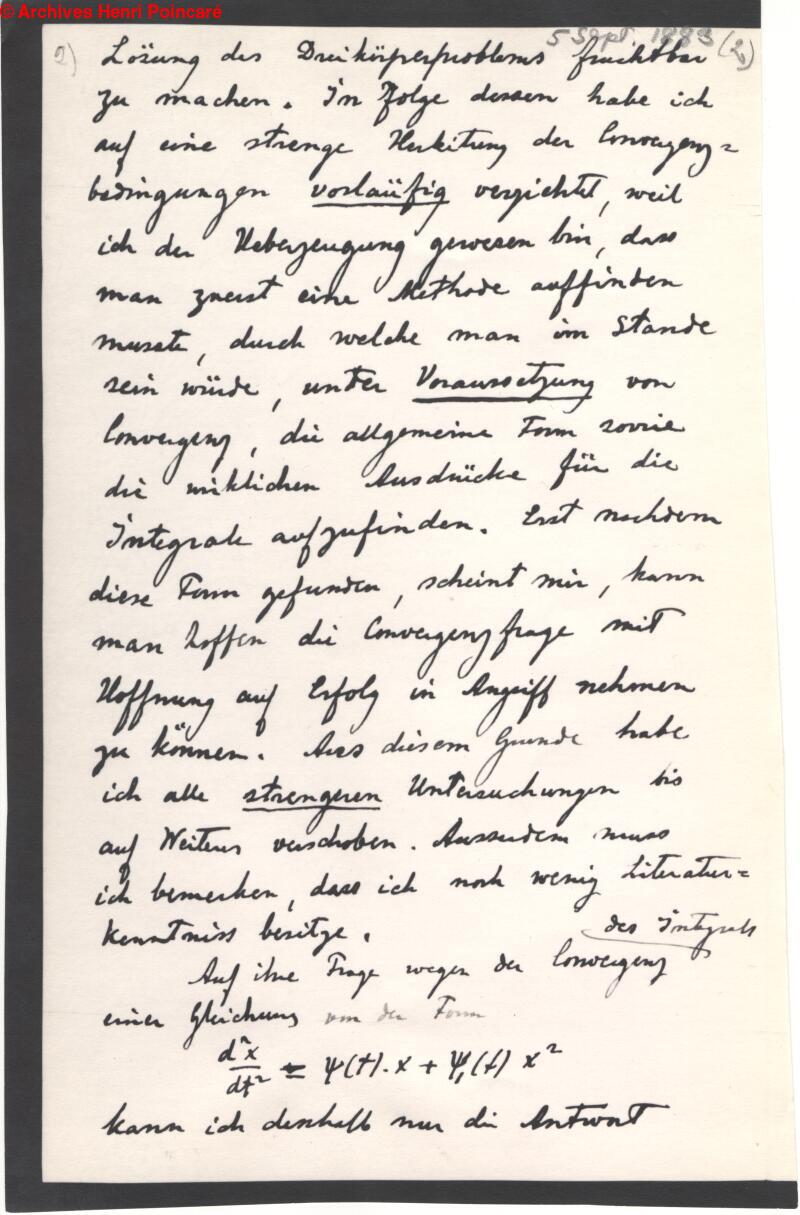 © Archives Henri Poincaré
5 Sept. 1883 (2)
2) Lösung des Dreikörperproblems fruchtbar
zu machen. In Folge dessen habe ich
auf eine strenge Herleitung der Convergenz=
bedingungen vorläufig verzichtet, weil
ich der Ueberzeugung gewesen bin, dass
man zuerst eine Methode auffinden
musste, durch welche man im Stande
sein würde, unter Voraussetzung von
Convergenz, die allgemeine Form sowie
die wirklichen Ausdrücke für die
Integrale aufzufinden. Erst nachdem
diese Form gefunden, scheint mir, kann
man hoffen die Convergenzfrage mit
Hoffnung auf Erfolg in Angriff nehmen
zu können. Aus diesem Grunde habe
ich alle strengeren Untersuchungen bis
auf Weiteres verschoben. Ausserdem muss
ich bemerken, dass ich noch wenig Literatur=
kenntniss besitze.
des Integrals
Auf ihre Frage wegen der Convergenz
einer Gleichung von der Form
d²x/dt² = ψ(t).x + ψ₁(t) x²
kann ich deshalb nur die Antwort